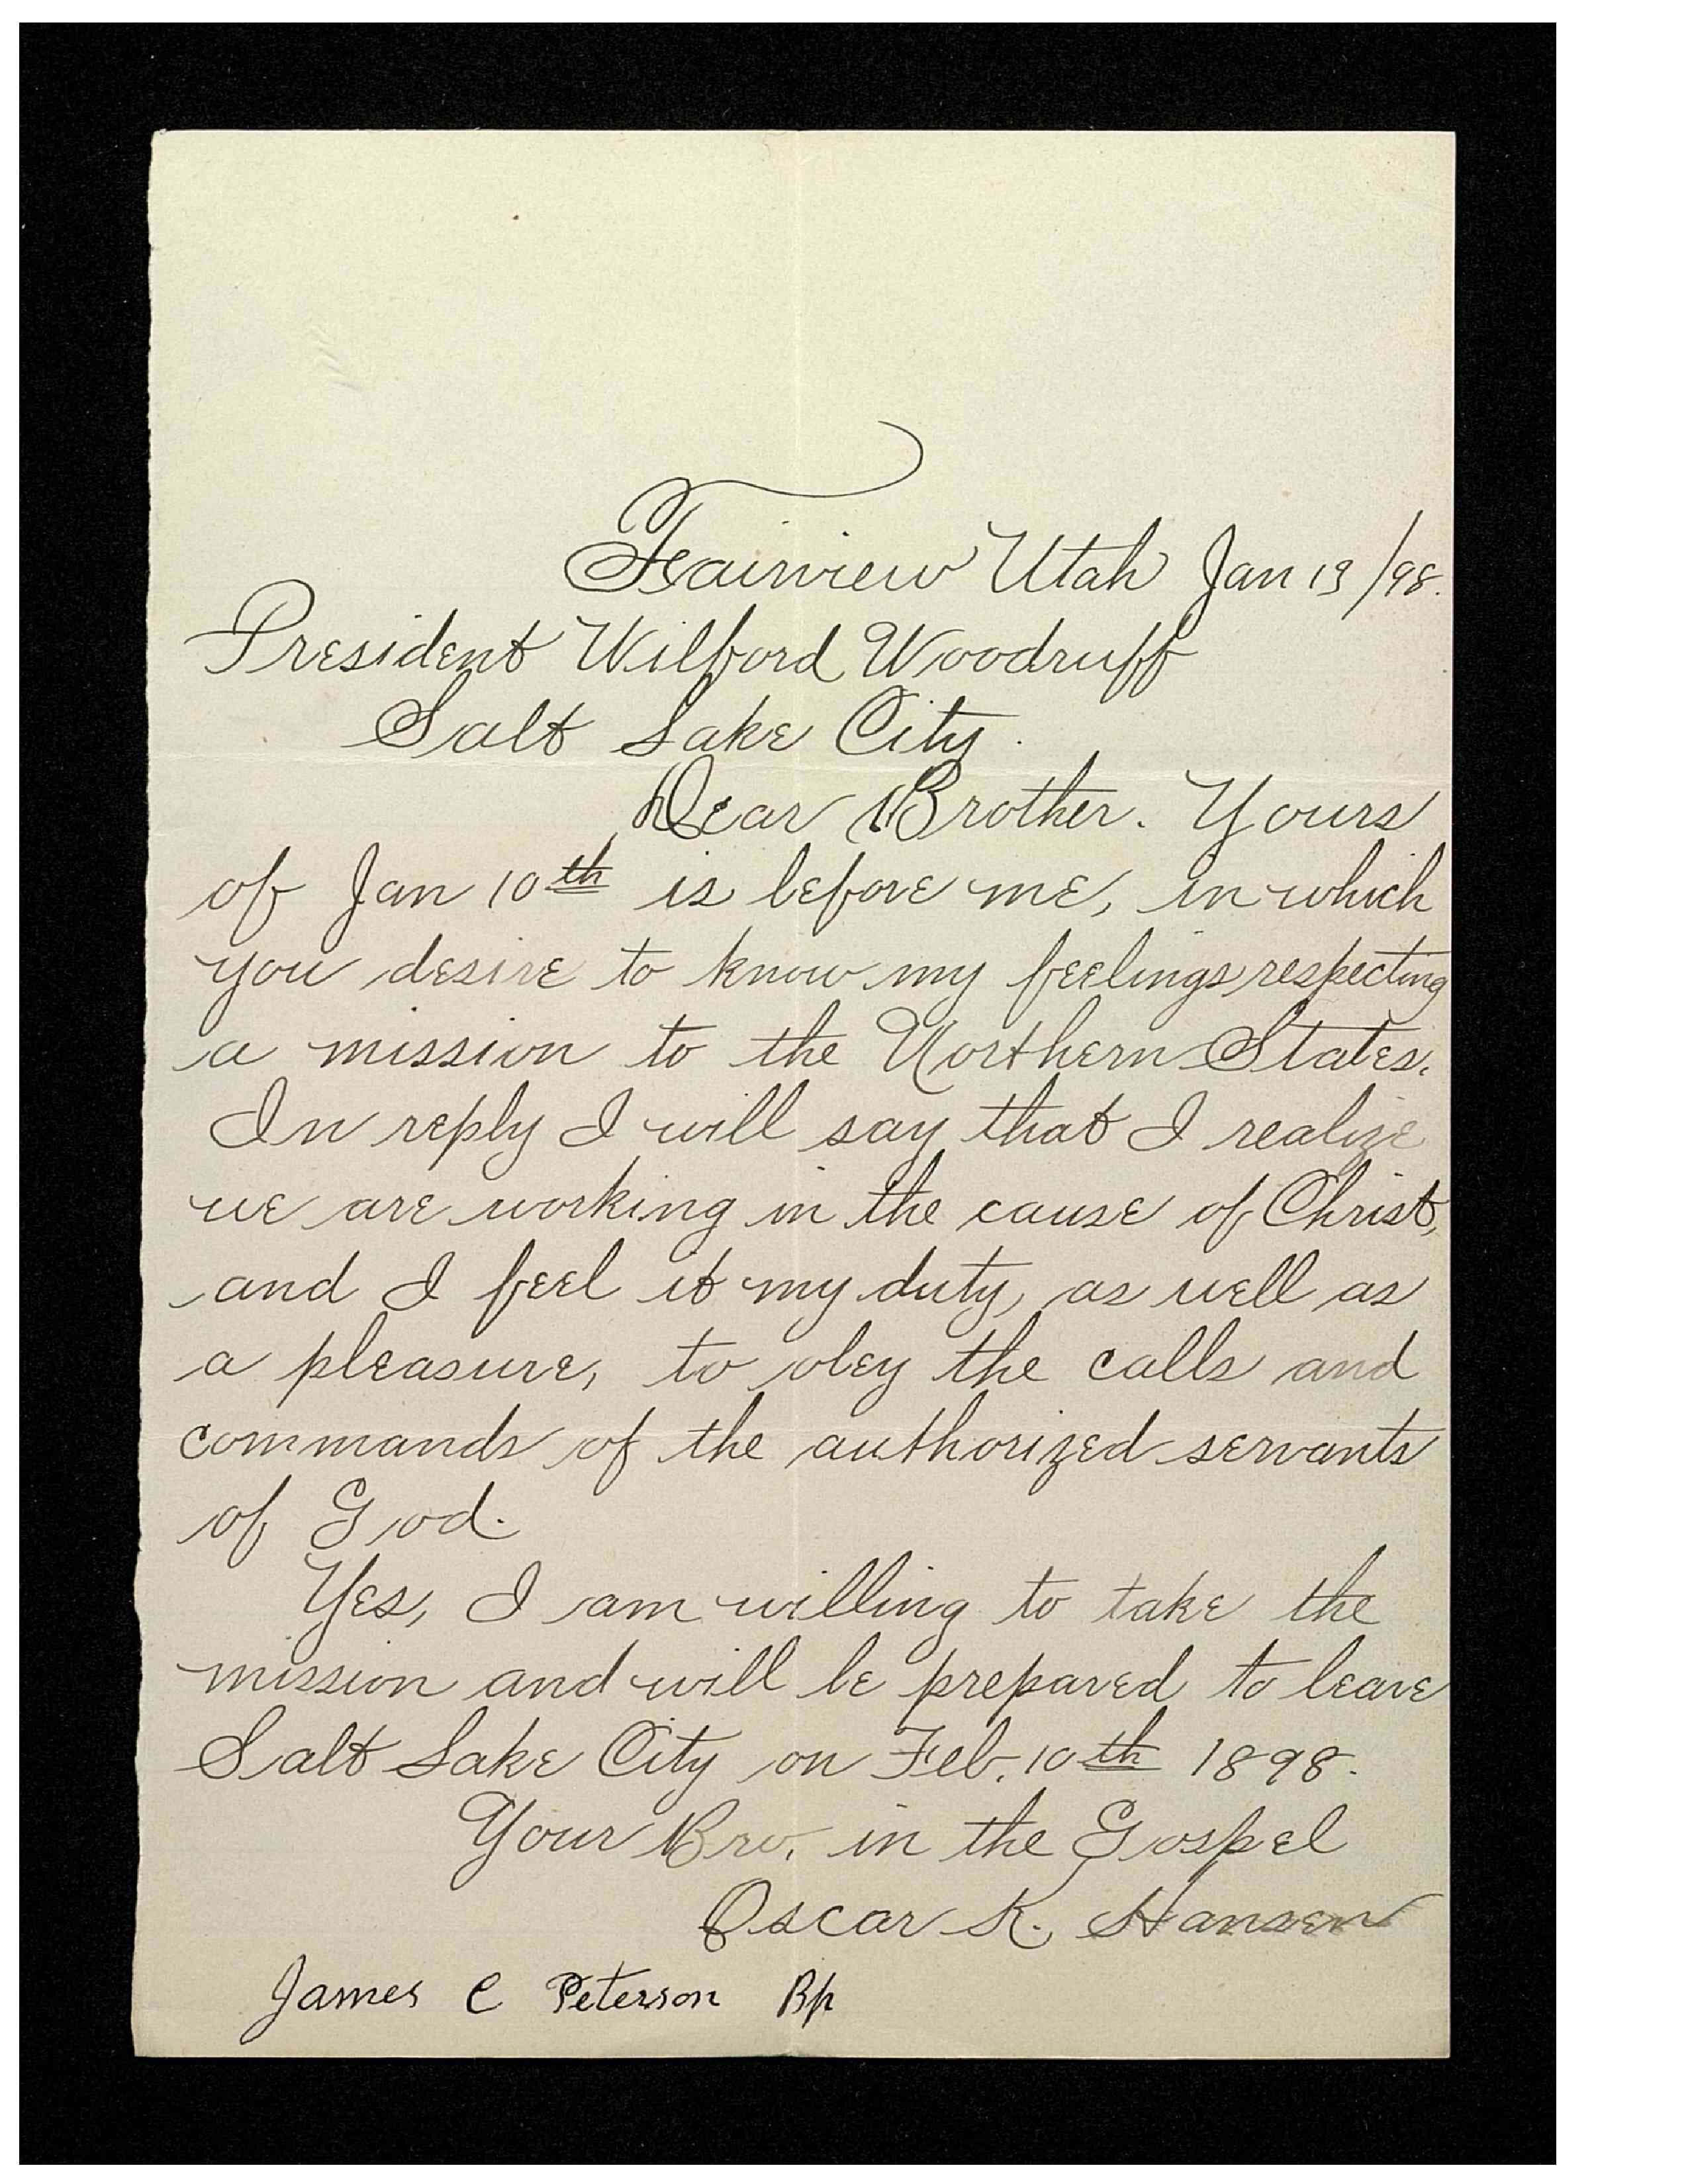 Fairview Utah Jan 13/98.
President Wilford Woodruff
Salt Lake City.
Dear Brother. Yours
of Jan 10th is before me, in which
you desire to know my feelings respecting
a mission to the Northern States.
In reply I will say that I realize
we are working in the cause of Christ,
and I feel it my duty, as well as
a pleasure, to obey the calls and
commands of the authorized servants
of God.
Yes, I am willing to take the
mission and will be prepared to leave
Salt Lake City on Feb. 10th 1898.
Your Bro. in the Gospel
Oscar K. Hansen
James C Peterson Bp